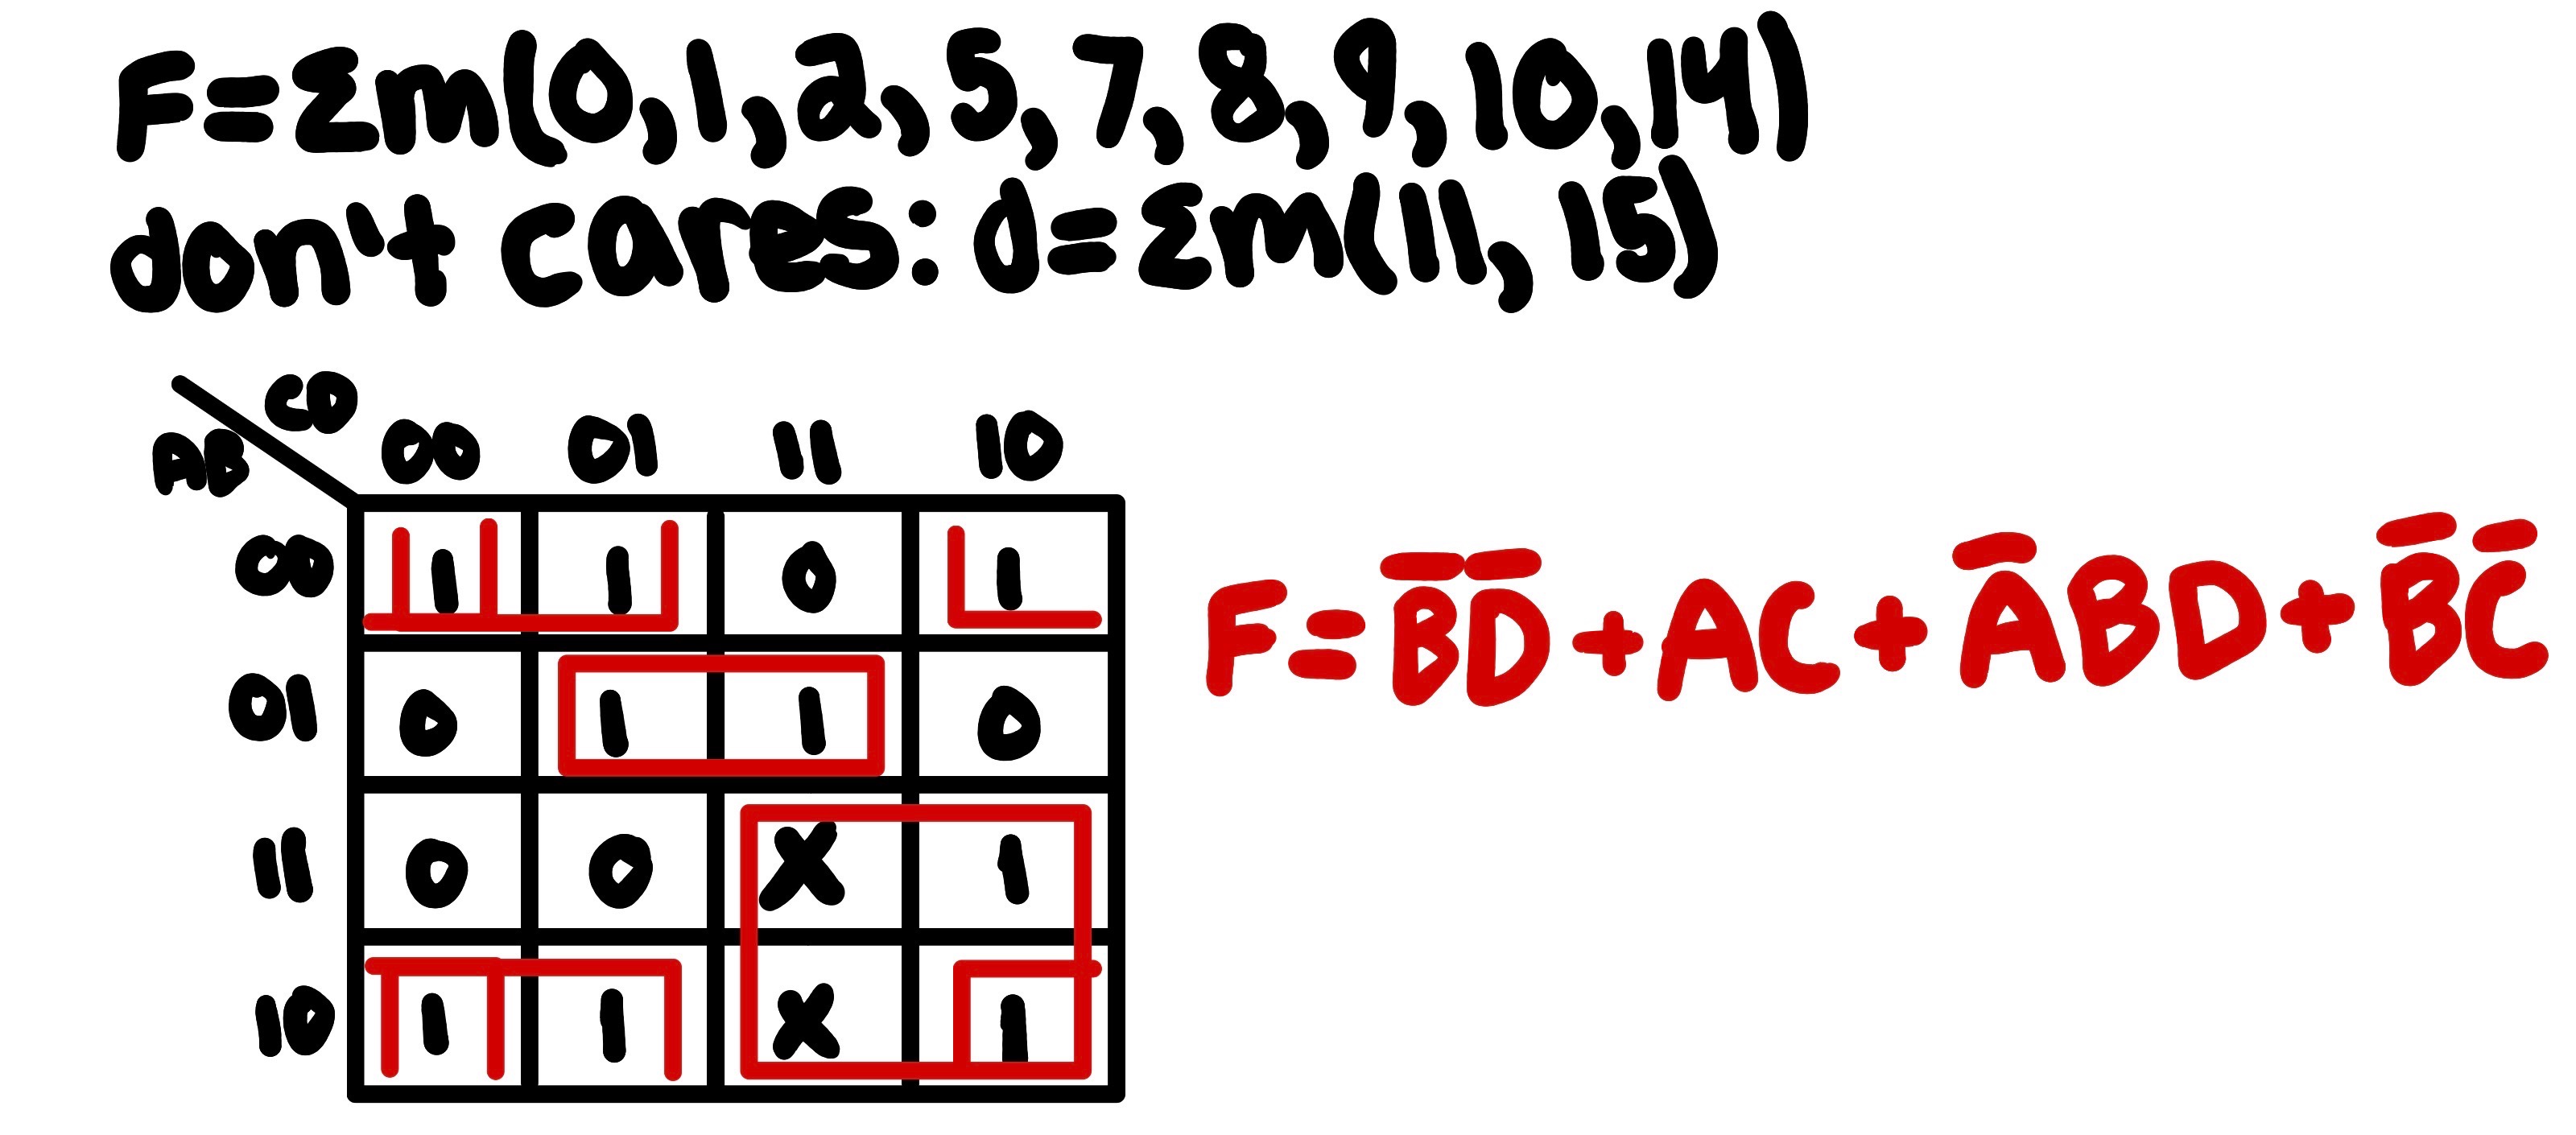 F=Σm(0,1,2,5,7,8,9,10,14)
don't cares: d=Σm(11,15)
CD
AB 00 01 11 10
00 1 1 0 1
01 0 1 1 0
11 0 0 X 1
10 1 1 X 1
F=B̅D̅+AC+A̅BD+B̅C̅